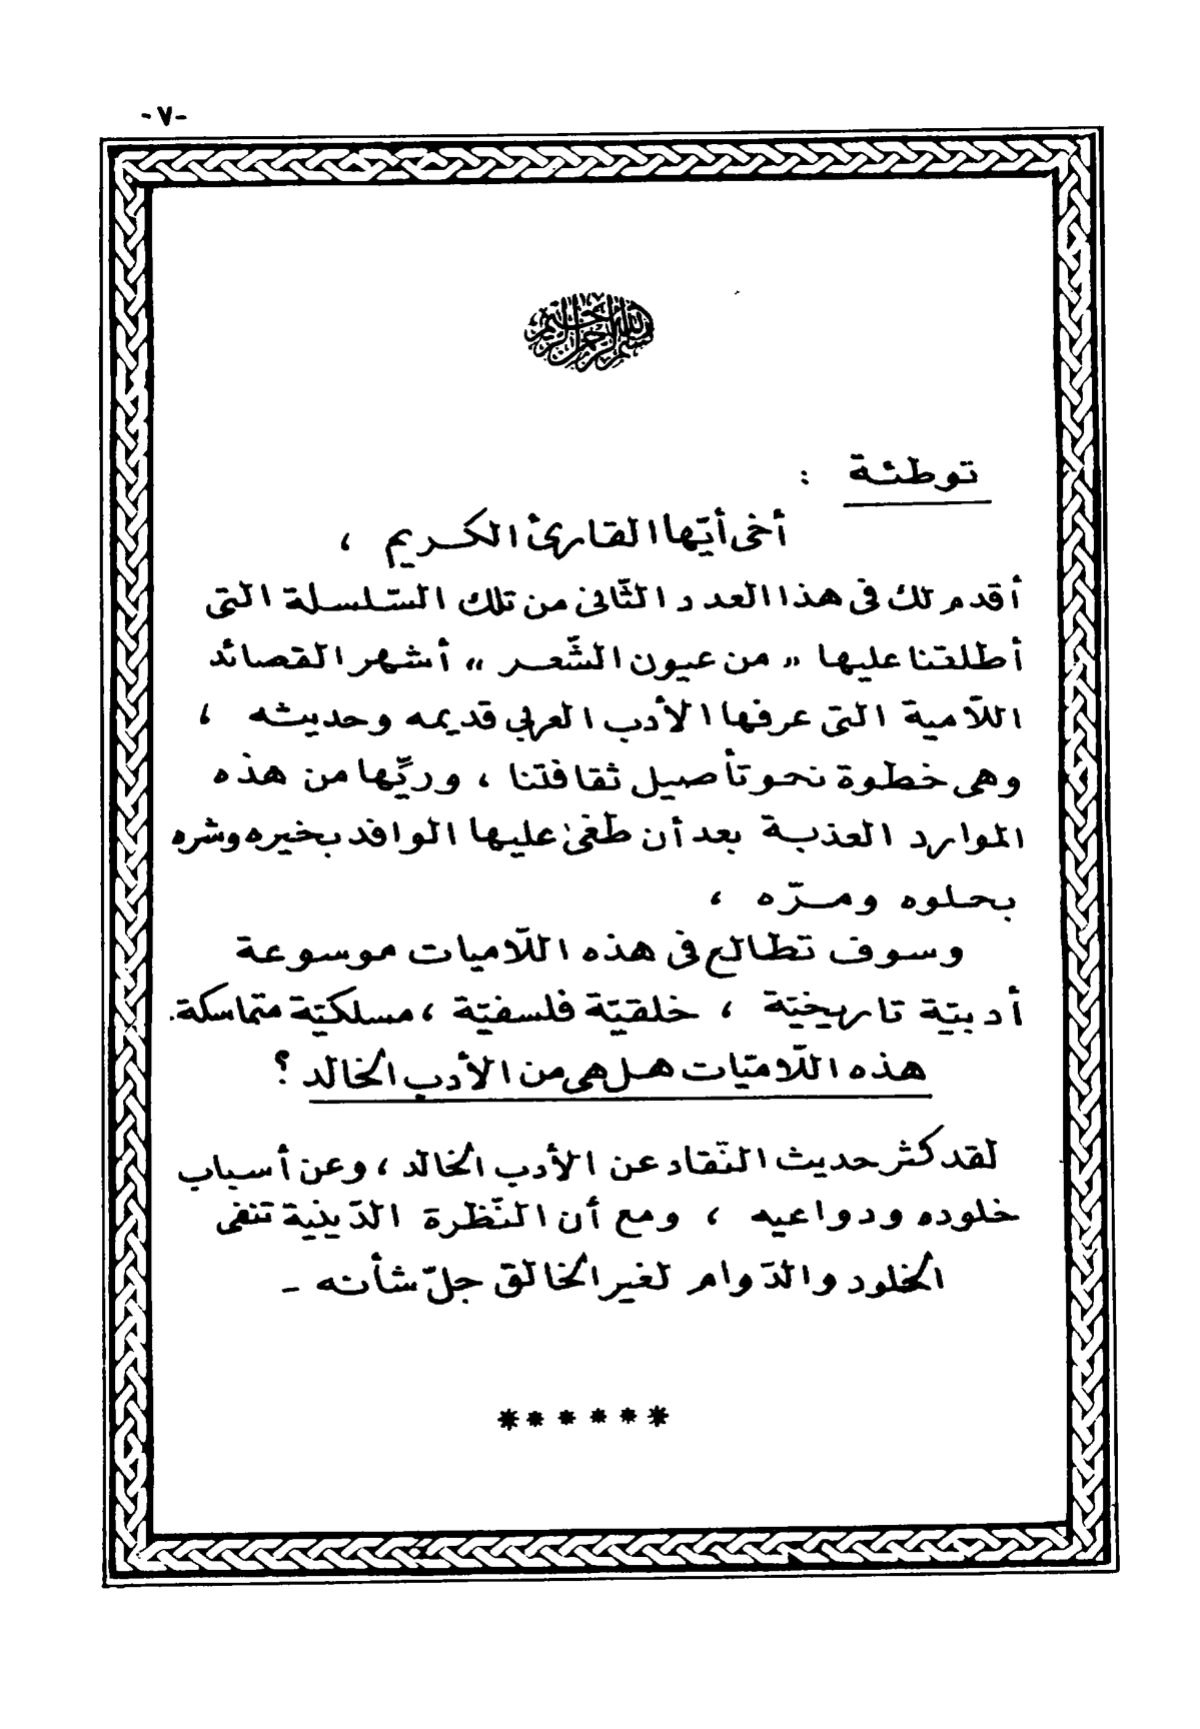 -٧-
بسم الله الرحمن الرحيم
توطئة :
أخى أيّها القارئ الكريم ،
أقدم لك فى هذا العدد الثّانى من تلك السّلسلة التى
أطلقنا عليها " من عيون الشّعر " أشهر القصائد
اللاّمية التى عرفها الأدب العربي قديمه وحديثه ،
وهى خطوة نحو تأصيل ثقافتنا ، وريِّها من هذه
الموارد العذبة بعد أن طغىٰ عليها الوافد بخيره وشره
بحلوه ومرّه ،
وسوف تطالع فى هذه اللاّميات موسوعة
أدبيّة تاريخيّة ، خلقيّة فلسفيّة ، مسلكيّة متماسكة.
هذه اللاّميّات هل هى من الأدب الخالد ؟
لقد كثر حديث النّقاد عن الأدب الخالد ، وعن أسباب
خلوده ودواعيه ، ومع أن النّظرة الدّينية تنفى
الخلود والدّوام لغير الخالق جلّ شأنه -
******